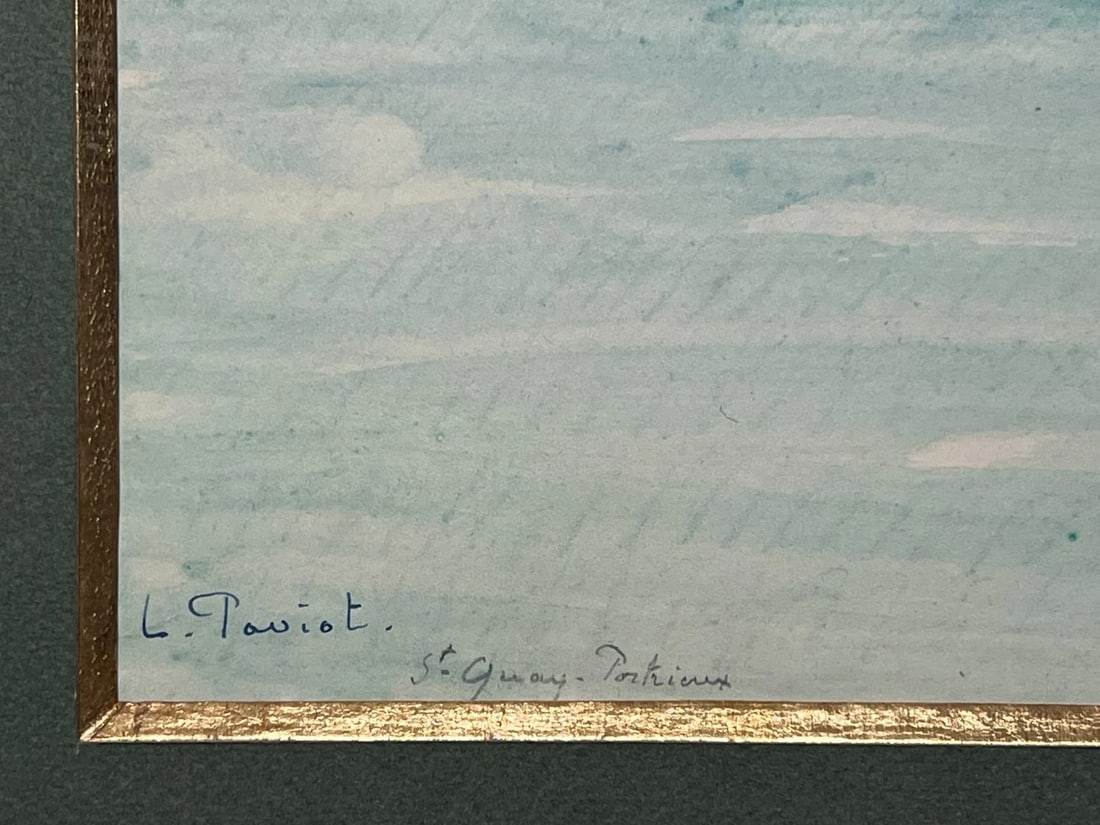 L. Paviot.
St Quay-Portrieux